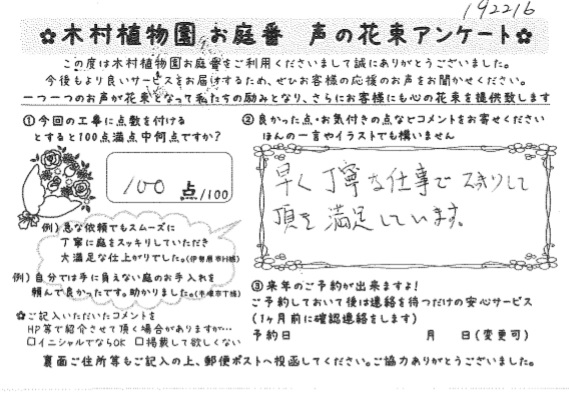 192216
✿木村植物園 お庭番 声の花束アンケート✿
この度は木村植物園お庭番をご利用くださいまして誠にありがとうございました。
今後もより良いサービスをお届けするため、ぜひお客様の応援のお声をお聞かせください。
一つ一つのお声が花束となって私たちの励みとなり、さらにお客様にも心の花束を提供致します
①今回の工事に点数を付ける
とすると100点満点中何点ですか?
100 点/100
例)急な依頼でもスムーズに
丁寧に庭をスッキリしていただき
大満足な仕上がりでした。(伊勢原市H様)
例)自分では手に負えない庭のお手入れを
頼んで良かったです。助かりました。(平塚市T様)
✿ご記入いただいたコメントを
HP等で紹介させて頂く場合がありますが…
□イニシャルでならOK □掲載して欲しくない
②良かった点・お気付きの点などコメントをお寄せください
ほんの一言やイラストでも構いません
早く丁寧な仕事でスッキリして
頂き満足しています。
③来年のご予約が出来ますよ!
ご予約しておいて後は連絡を待つだけの安心サービス
(1ヶ月前に確認連絡をします)
予約日 月 日(変更可)
裏面ご住所等もご記入の上、郵便ポストへ投函してください。ご協力ありがとうございました。